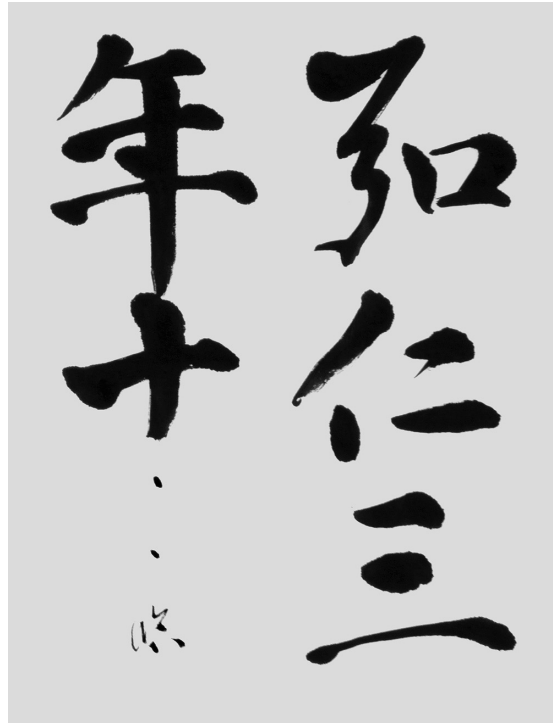 弘仁三
年十・・臨